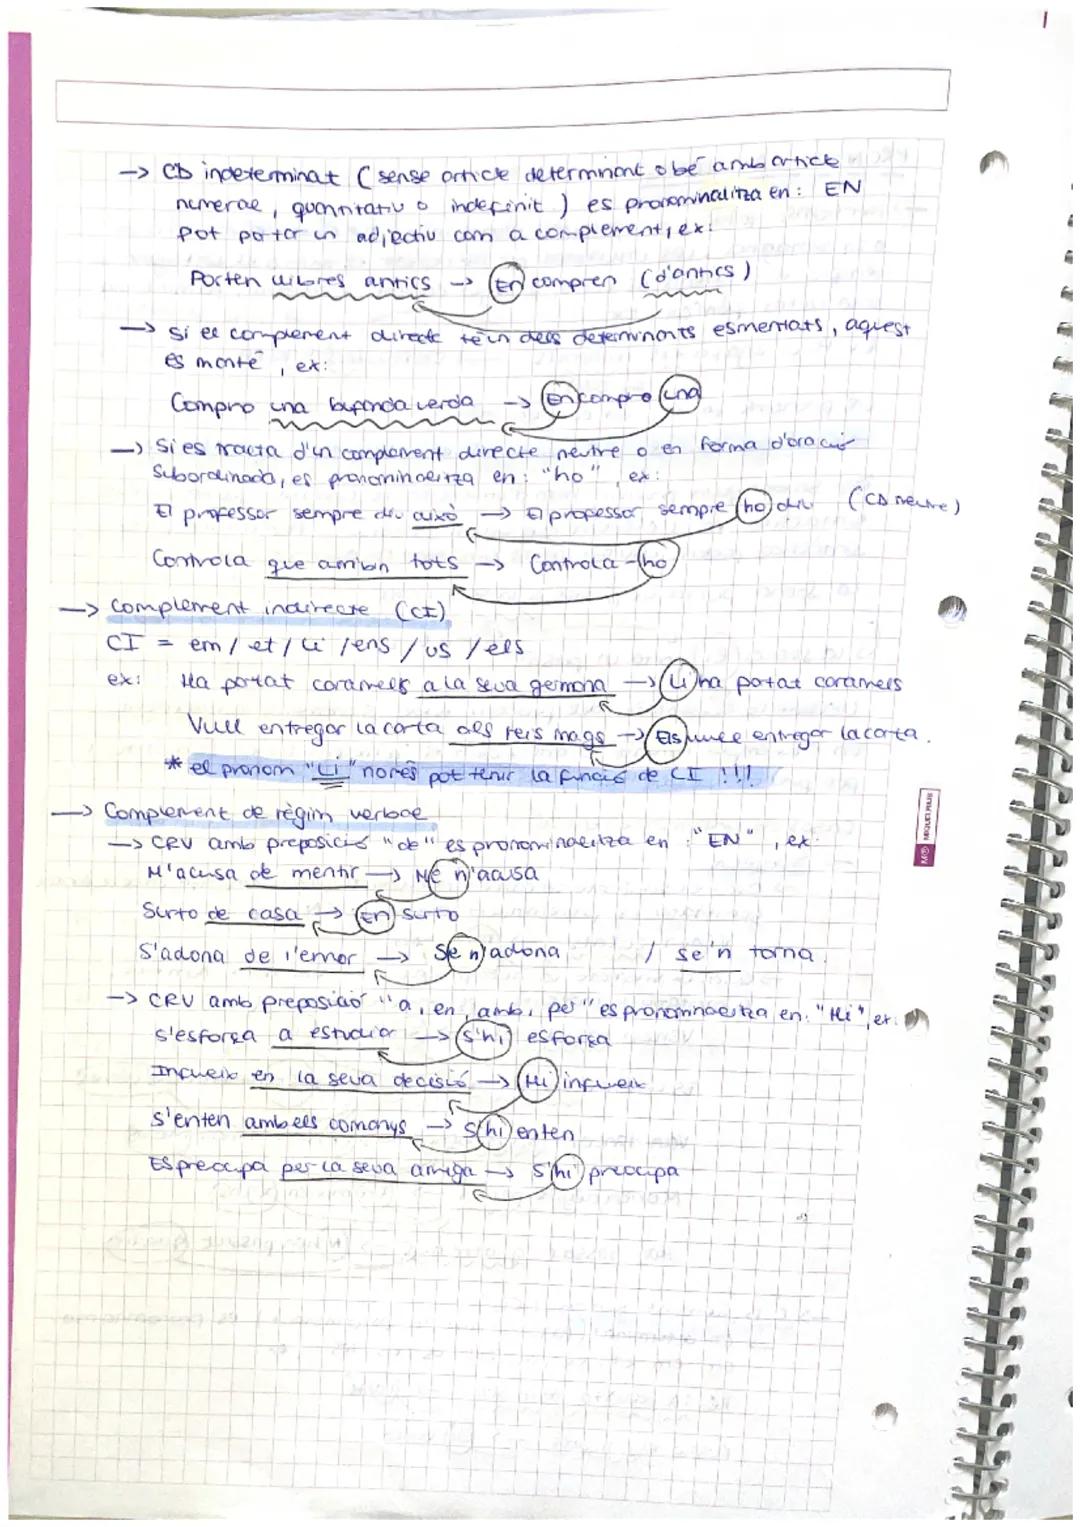 → CD indeterminat (sense article determinant o bé amb article
numeral, quantitatiu o indefinit) es pronominalitza en: EN
pot portar un adjectiu com a complement, ex:
Porten llibres antics → En compren (d'antics)
→ Si el complement directe té un dels determinants esmentats, aquest
es manté, ex:
Compro una bufanda verda → En compro una
→ Si es tracta d'un complement directe neutre o en forma d'oració
subordinada, es pronominalitza en: "ho", ex:
El professor sempre diu això → El professor sempre ho diu (CD neutre)
Controla que arribin tots → Controla-ho
→ Complement indirecte (CI)
CI = em / et / li / ens / us / els
ex: Ha portat caramels a la seva germana → Li ha portat caramels
Vull entregar la carta als reis mags → Els vull entregar la carta.
* el pronom "Li" només pot tenir la funció de CI !!!
→ Complement de règim verbal
→ CRV amb preposició "de" es pronominalitza en: "EN", ex:
M'acusa de mentir → Me n'acusa
Surto de casa → En surto
S'adona de l'error → Se n'adona / se'n torna.
→ CRV amb preposició "a, en, amb, per" es pronominalitza en: "Hi", ex:
S'esforça a estudiar → S'hi esforça
Influeix en la seva decisió → Hi influeix
S'enten amb els companys → S'hi enten
Es preocupa per la seva amiga → S'hi preocupa
MIQUELRIUS